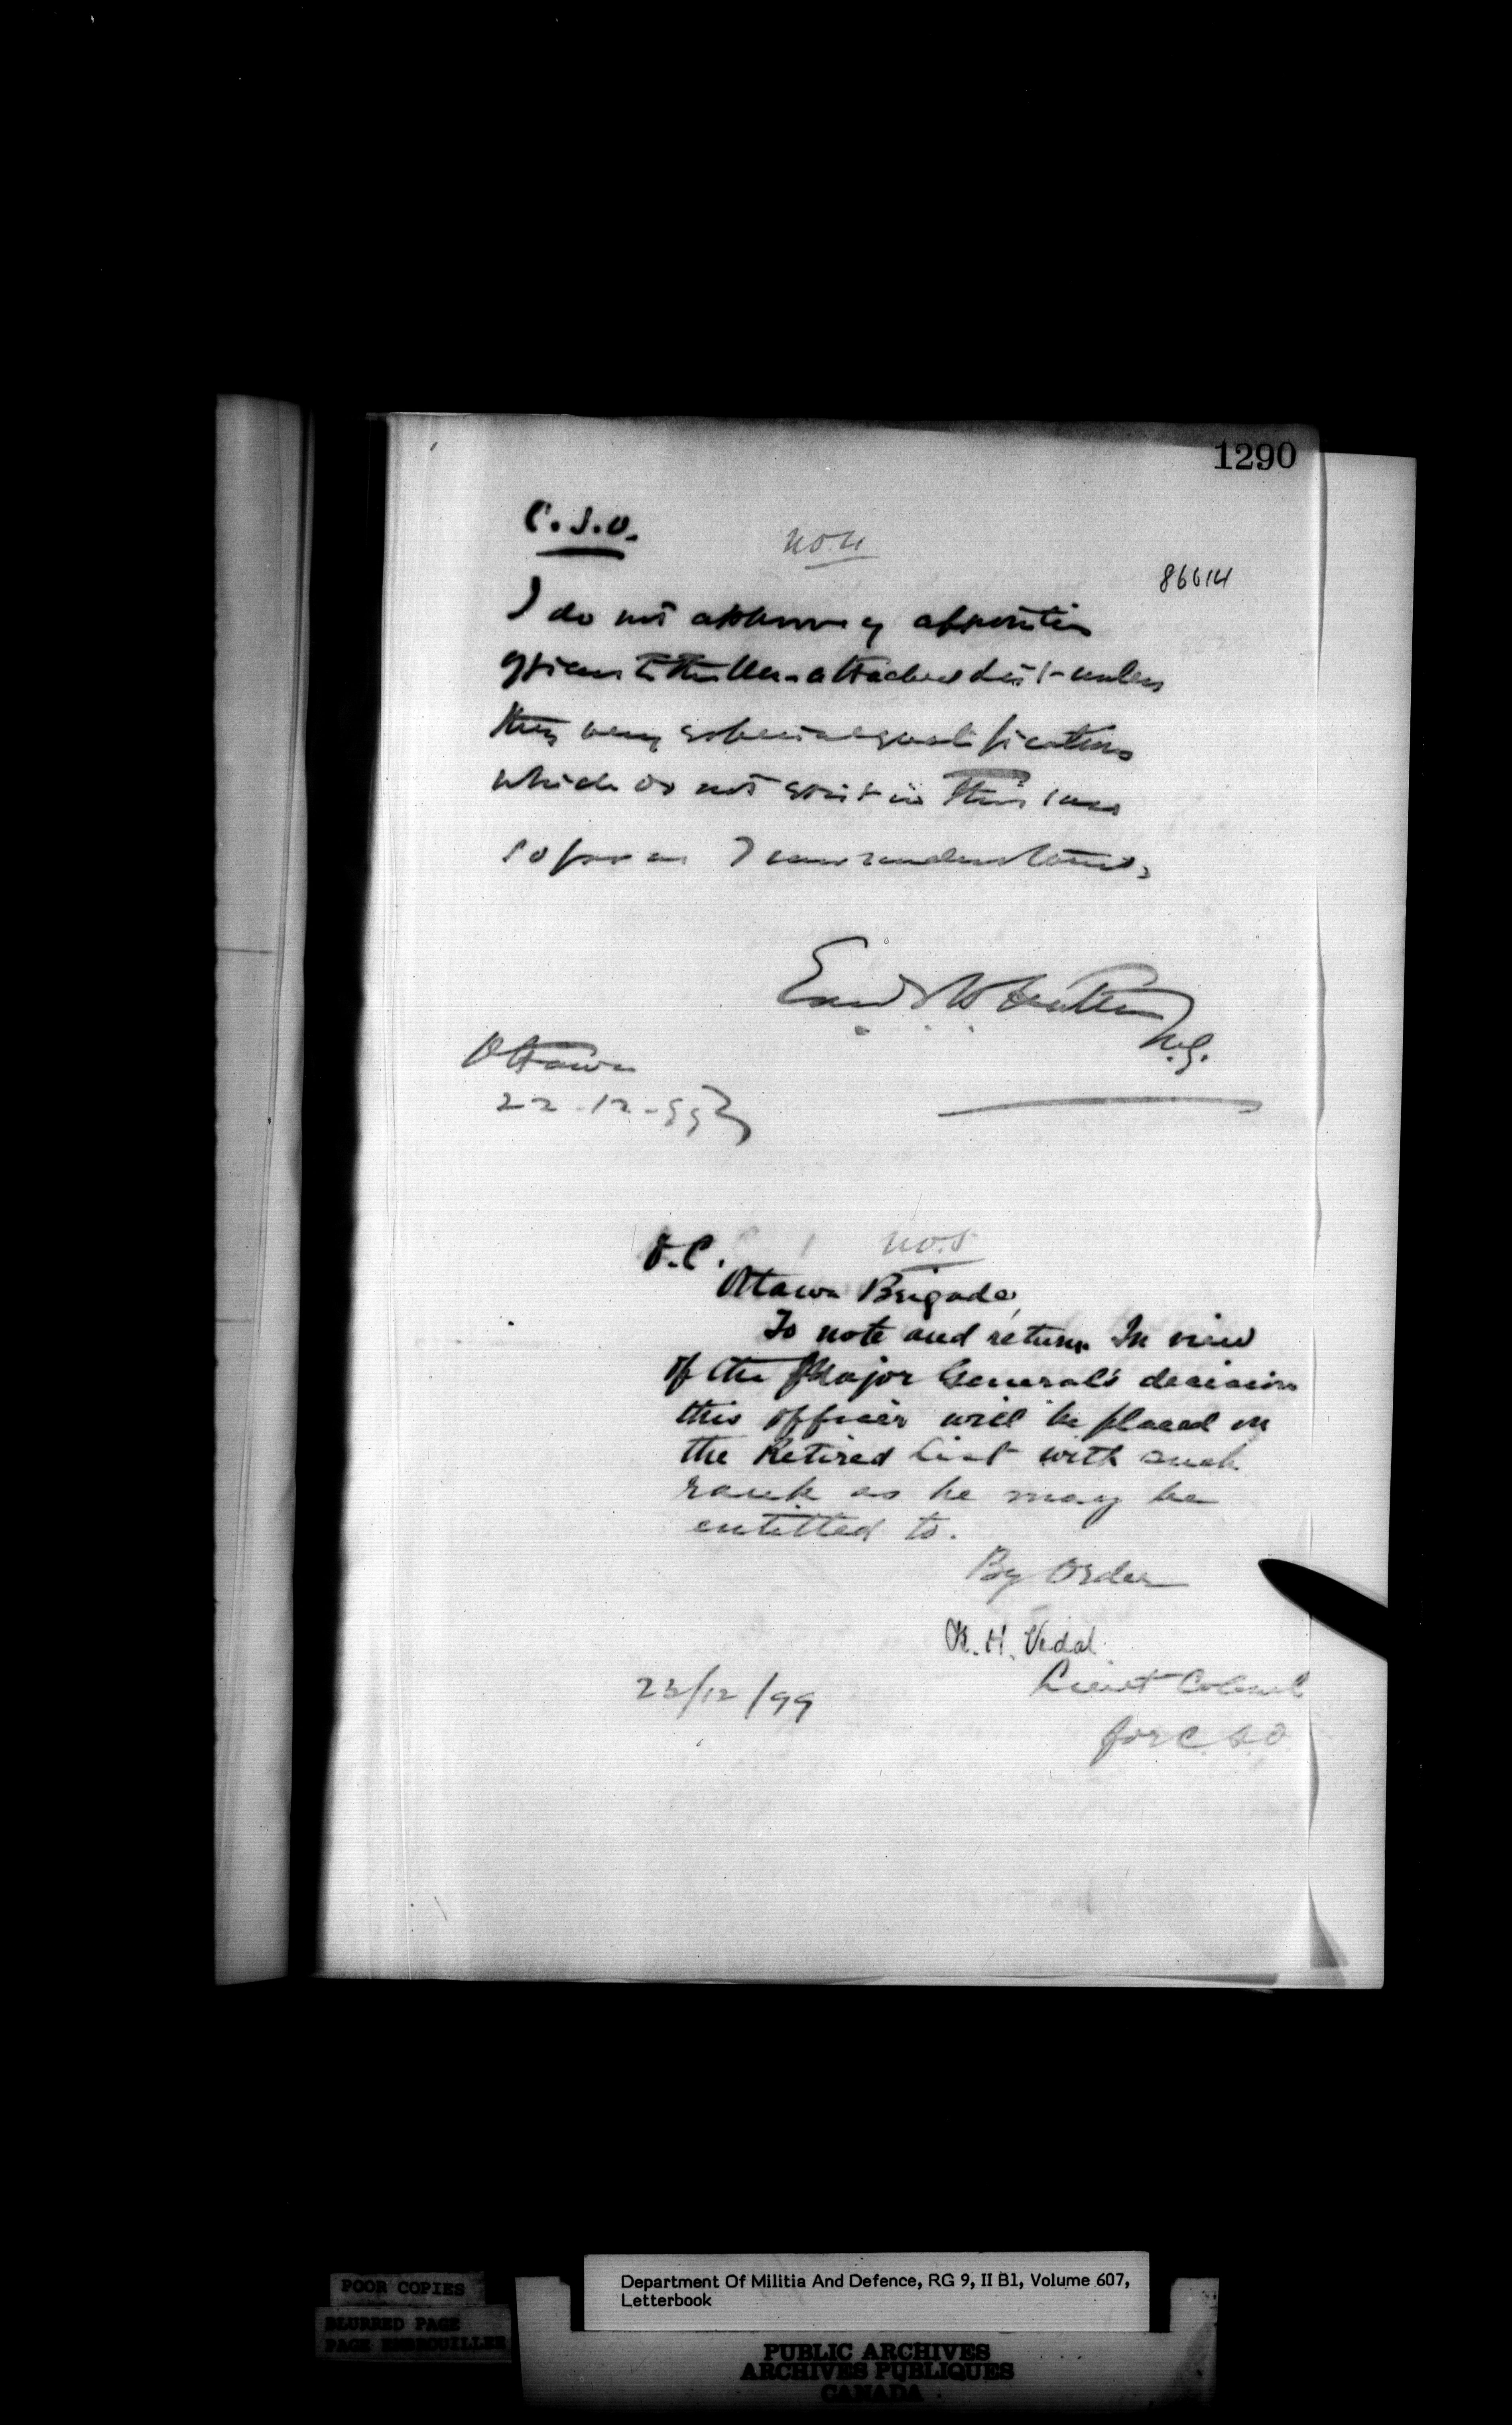 1290
C.S.O.
No. 4
86614
I do not approve of appointing
officers to the Un-attached List unless
they very special qualifications
which do not exist in this case
so far as I can understand.
Edward T. H. Hutton
M.G.
Ottawa
22-12-99
O.C.
No. 5
Ottawa Brigade,
To note and return. In view
of the Major General's decision
this officer will be placed on
the Retired List with such
rank as he may be
entitled to.
By Order
B. H. Vidal
Lieut Colonel
for C.S.O.
23/12/99
POOR COPIES
BLURRED PAGE
PAGE EMBROUILLEE
Department Of Militia And Defence, RG 9, II B1, Volume 607,
Letterbook
PUBLIC ARCHIVES
ARCHIVES PUBLIQUES
CANADA